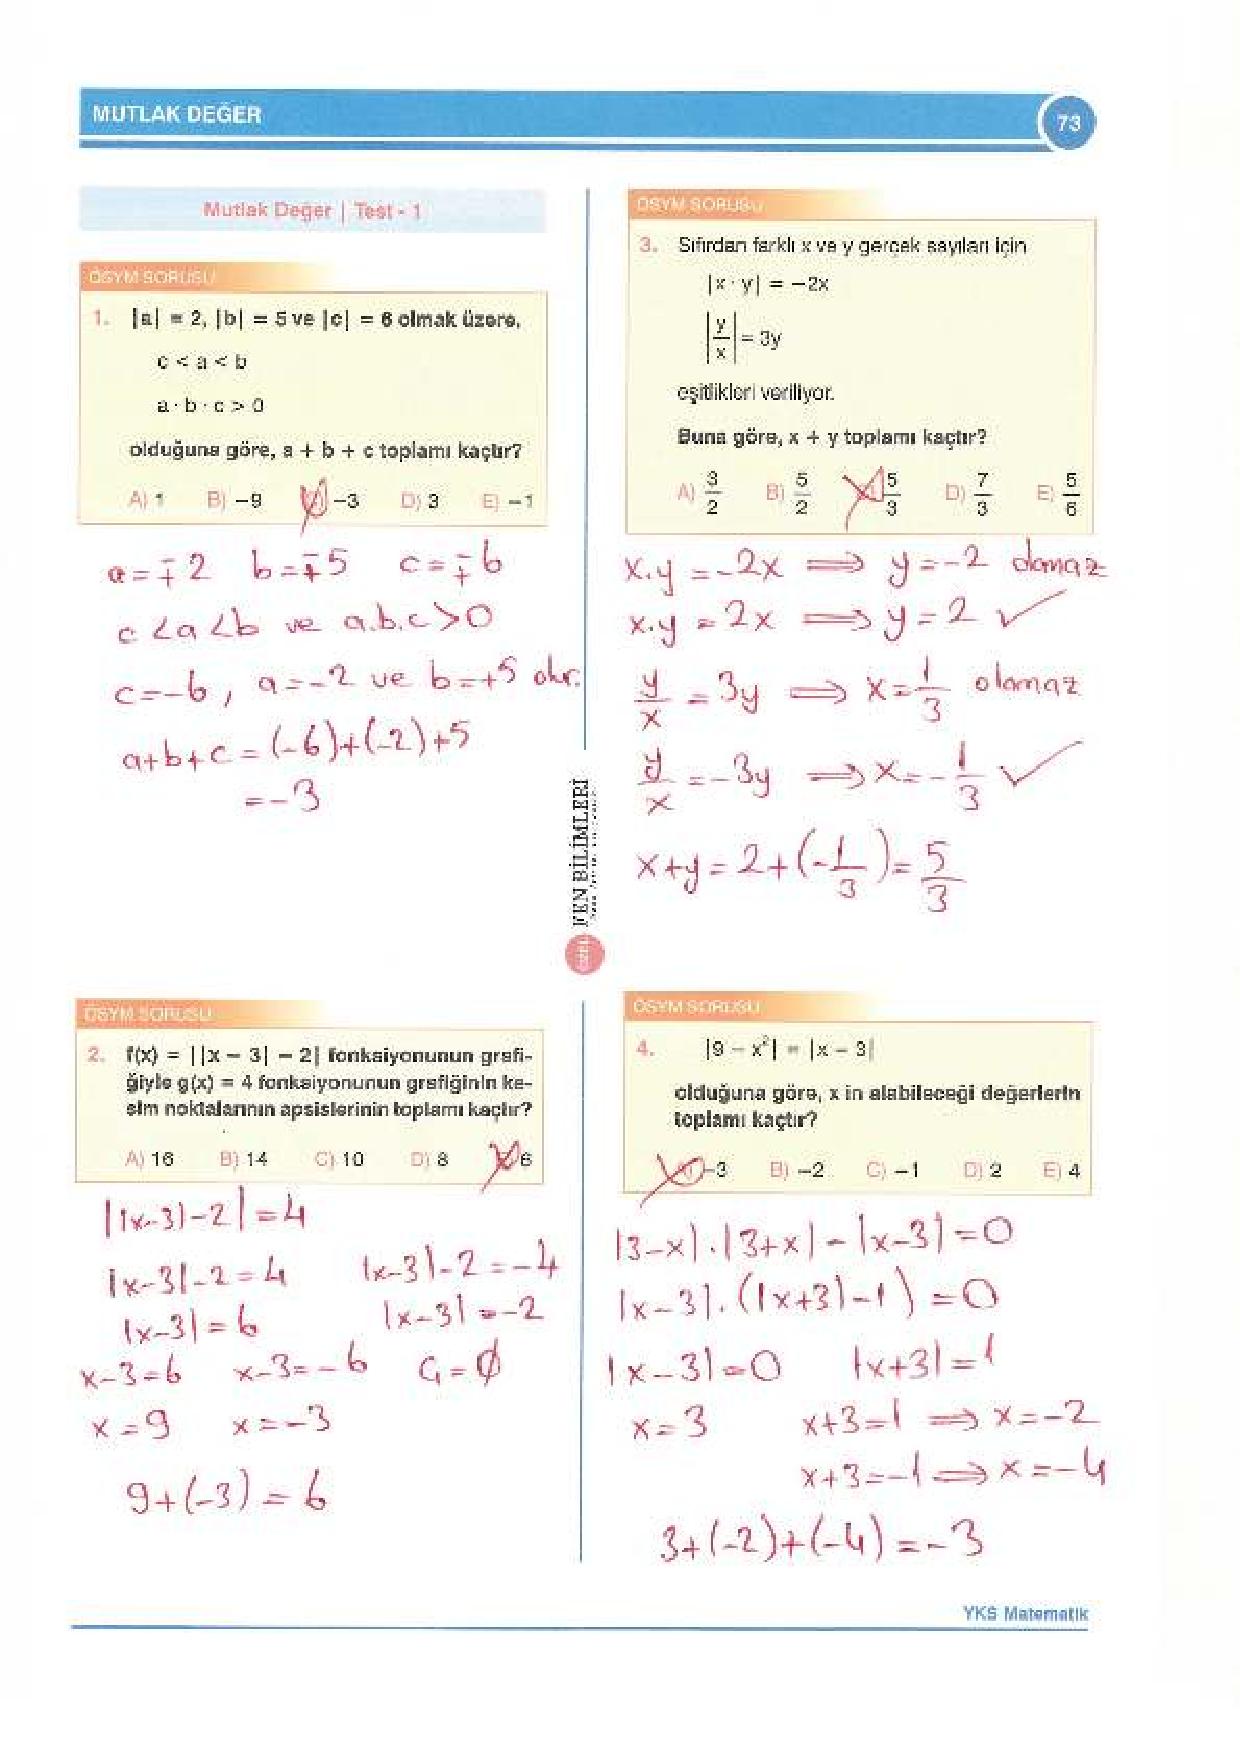 MUTLAK DEĞER
73
Mutlak Değer | Test - 1
ÖSYM SORUSU
1. |a| = 2, |b| = 5 ve |c| = 6 olmak üzere,
c < a < b
a · b · c > 0
olduğuna göre, a + b + c toplamı kaçtır?
A) 1 B) −9 C) −3 D) 3 E) −1
a = ∓2 b = ∓5 c = ∓6
c < a < b ve a.b.c > 0
c = -6, a = -2 ve b = +5 olur.
a+b+c = (-6)+(-2)+5
= -3
ÖSYM SORUSU
2. f(x) = ||x − 3| − 2| fonksiyonunun grafi-
ğiyle g(x) = 4 fonksiyonunun grafiğinin ke-
sim noktalarının apsislerinin toplamı kaçtır?
A) 16 B) 14 C) 10 D) 8 E) 6
||x-3|-2| = 4
|x-3|-2 = 4 |x-3|-2 = -4
|x-3| = 6 |x-3| = -2
x-3=6 x-3=-6 Ç = ∅
x = 9 x = -3
9+(-3) = 6
FEN BİLİMLERİ
ÖSYM SORUSU
3. Sıfırdan farklı x ve y gerçek sayıları için
|x · y| = −2x
|y/x| = 3y
eşitlikleri veriliyor.
Buna göre, x + y toplamı kaçtır?
A) 3/2 B) 5/2 C) 5/3 D) 7/3 E) 5/6
x.y = -2x ⟹ y = -2 olamaz
x.y = 2x ⟹ y = 2 ✓
y/x = 3y ⟹ x = 1/3 olamaz
y/x = -3y ⟹ x = -1/3 ✓
x+y = 2+(-1/3) = 5/3
ÖSYM SORUSU
4. |9 − x²| = |x − 3|
olduğuna göre, x in alabileceği değerlerin
toplamı kaçtır?
A) −3 B) −2 C) −1 D) 2 E) 4
|3-x|.|3+x| - |x-3| = 0
|x-3|.(|x+3|-1) = 0
|x-3| = 0 |x+3| = 1
x = 3 x+3=1 ⟹ x = -2
x+3=-1 ⟹ x = -4
3+(-2)+(-4) = -3
YKS Matematik